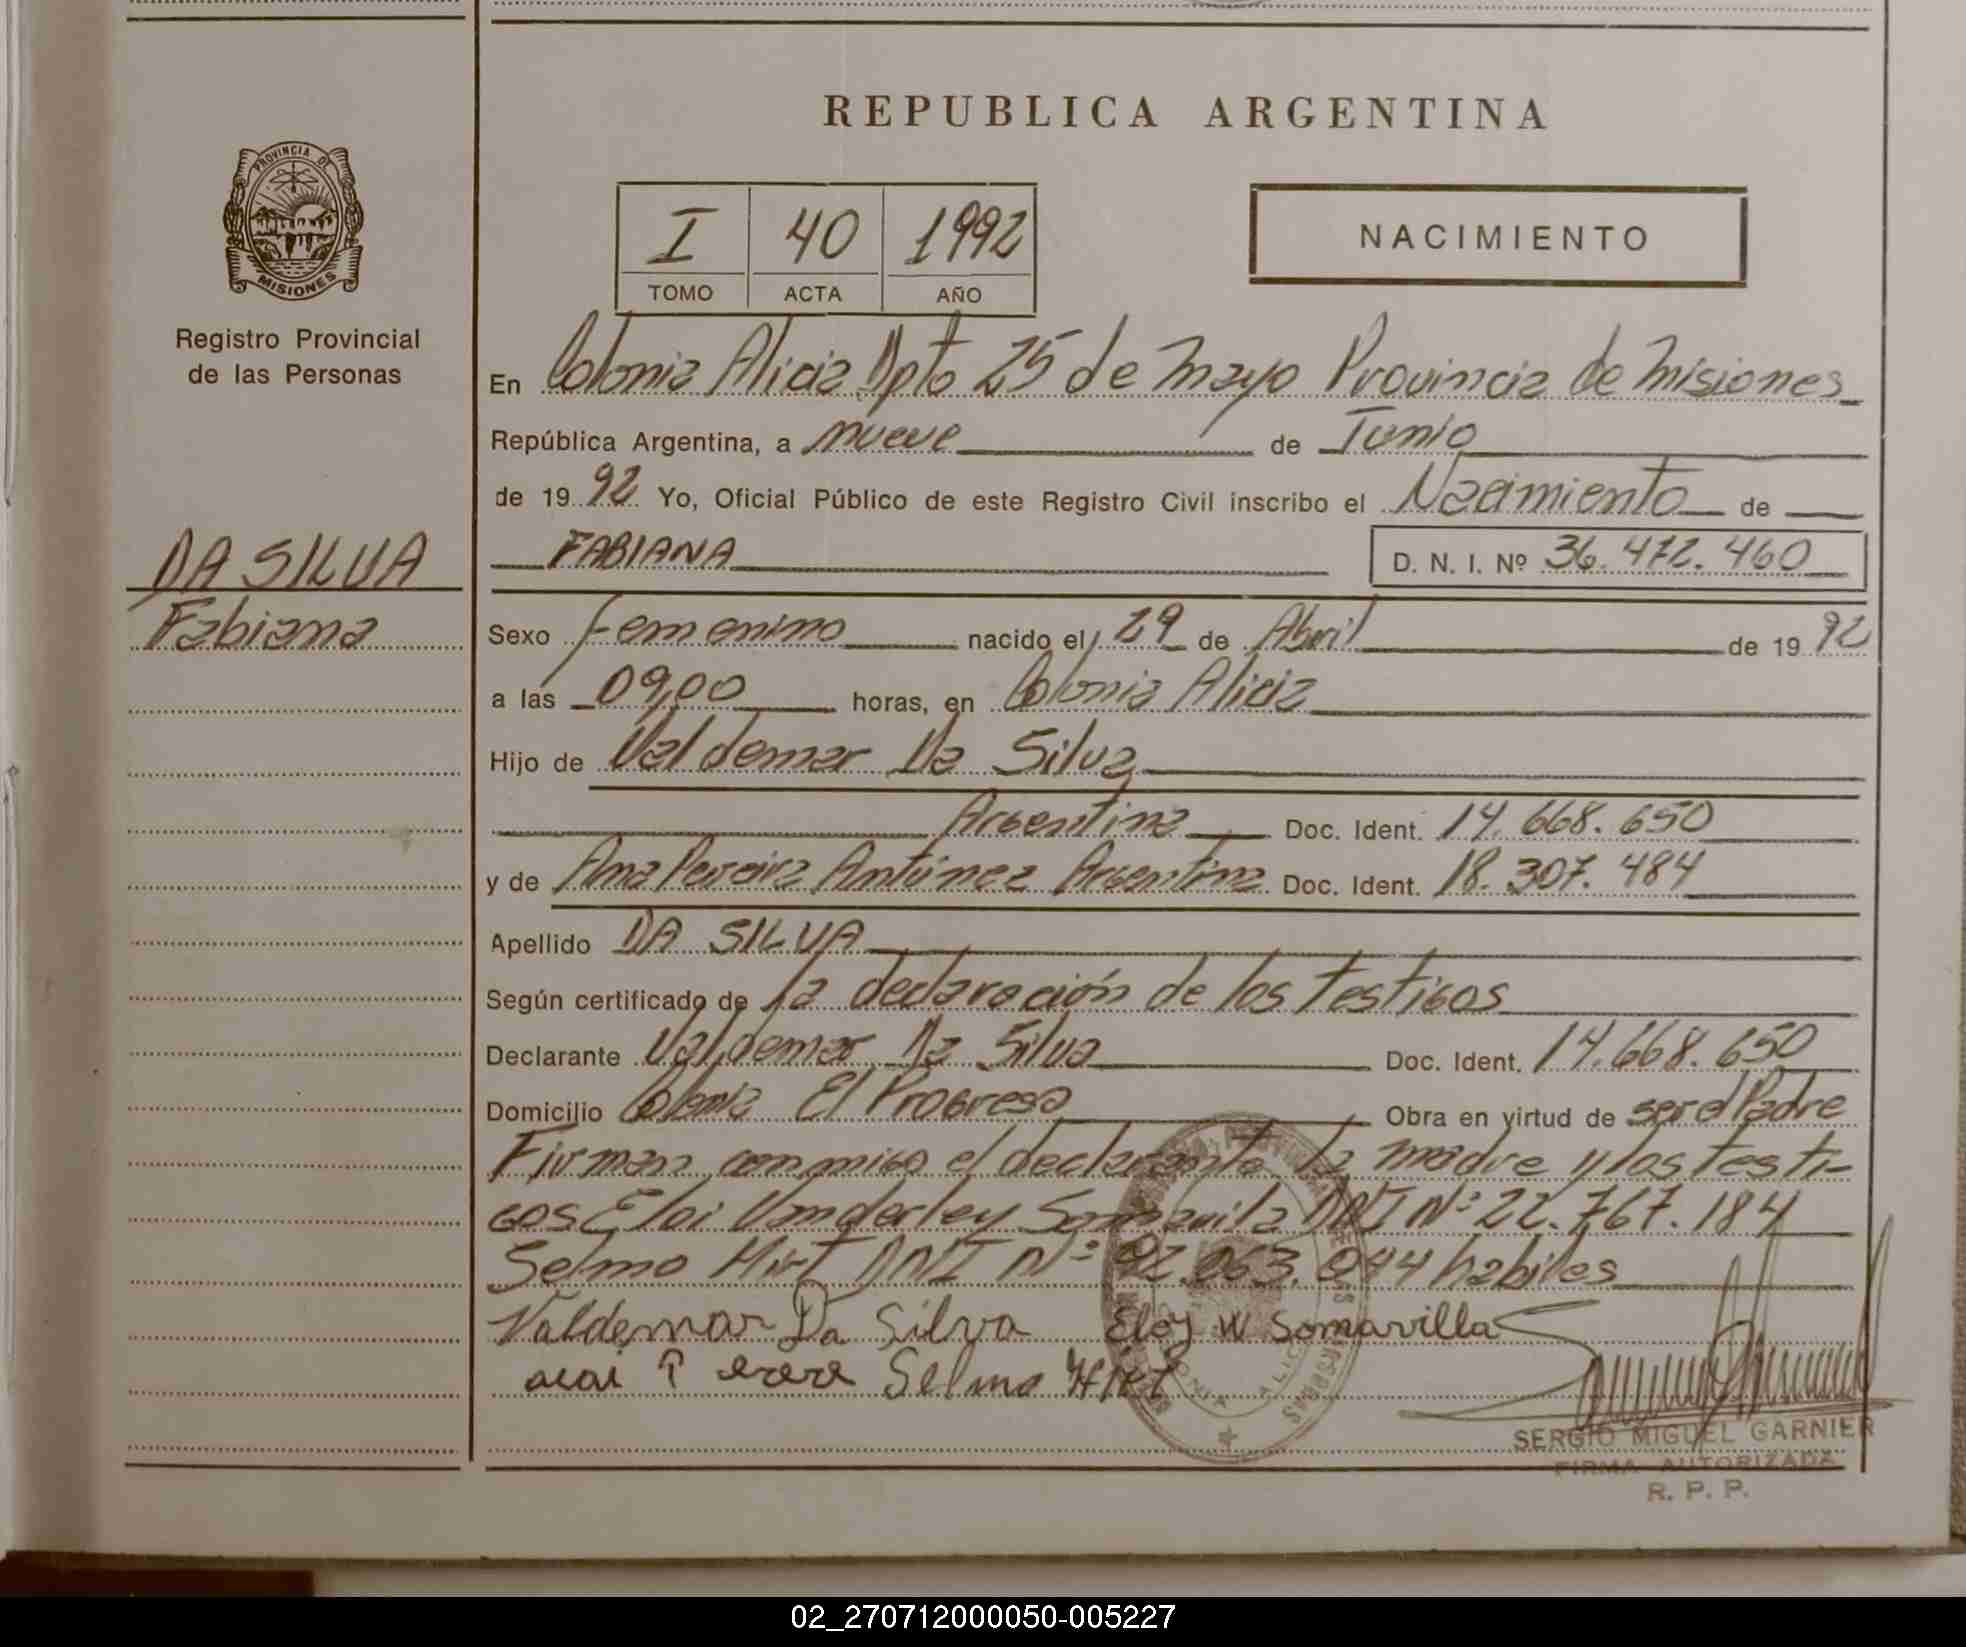 REPUBLICA ARGENTINA
PROVINCIA DE
MISIONES
Registro Provincial
de las Personas
I 40 1992
TOMO ACTA AÑO
NACIMIENTO
En Colonia Alicia Dpto 25 de Mayo Provincia de Misiones
República Argentina, a nueve de Junio
de 19 92 Yo, Oficial Público de este Registro Civil inscribo el Nacimiento de
FABIANA D. N. I. Nº 36.472.460
DA SILVA
Fabiana
Sexo femenino nacido el 29 de Abril de 19 92
a las 09,00 horas, en Colonia Alicia
Hijo de Valdemar Da Silva
Argentina Doc. Ident. 14.668.650
y de Ana Pereira Antúnez Argentina Doc. Ident. 18.307.484
Apellido DA SILVA
Según certificado de la declaración de los testigos
Declarante Valdemar Da Silva Doc. Ident. 14.668.650
Domicilio Colonia El Progreso Obra en virtud de ser el Padre
Firman conmigo el declarante la madre y los testi-
gos Eloi Vanderley Somavilla DNI Nº 22.767.184
Selmo Hirt DNI Nº 92.063.044 habiles
Valdemar Da Silva Eloy W Somavilla
Selmo Hirt
SERGIO MIGUEL GARNIER
FIRMA AUTORIZADA
R. P. P.
02_270712000050-005227